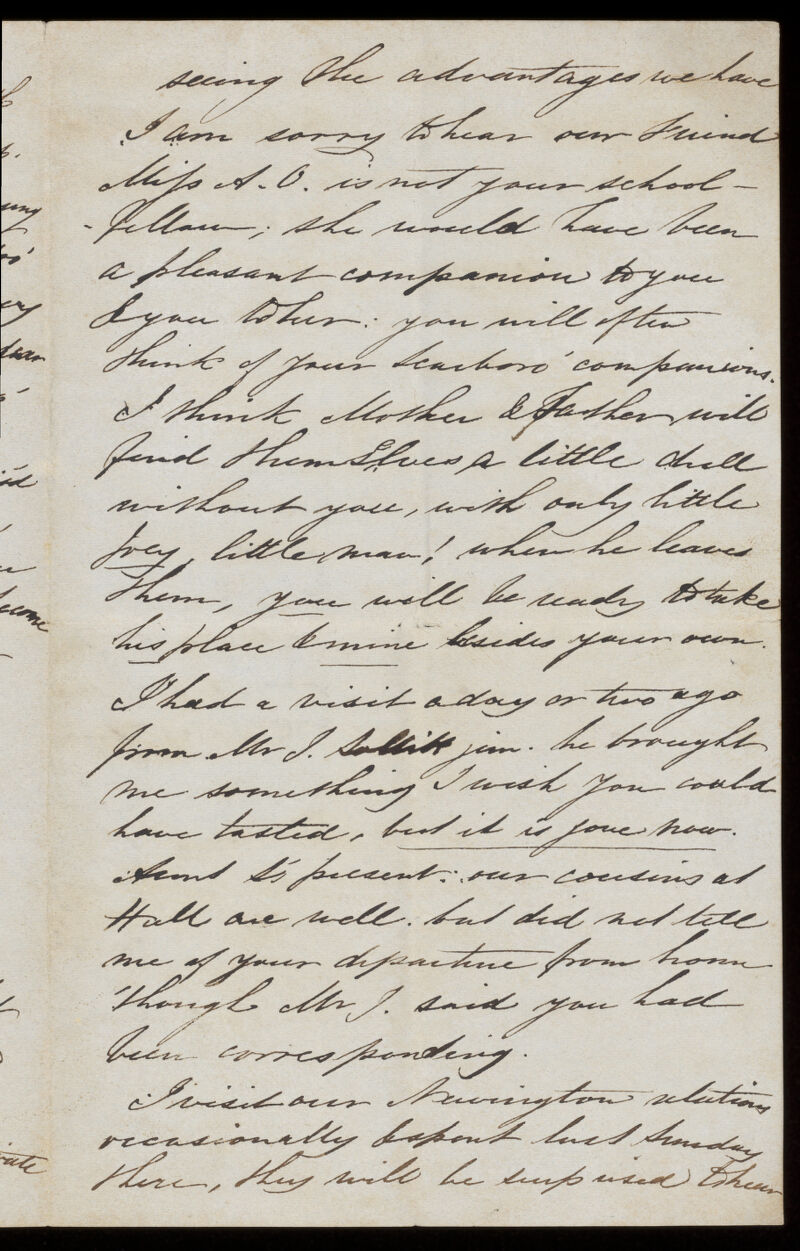 seeing the advantages we have
I am sorry to hear our Friend
Miss A. O. is not your school-
-fellow; she would have been
a pleasant companion to you
& you to her: you will often
think of your Scarboro' companions.
I think Mother & Father will
find themselves a little dull
without you, with only little
Joey, little man! when he leaves
them, you will be ready to take
his place & mine besides your own.
I had a visit a day or two ago
from Mr J. Sollitt jun. he brought
me something I wish you could
have tasted, but it is gone now.
Aunt S's present: our cousins at
Hull are well. but did not tell
me of your departure from home
'though Mr J. said you had
been corresponding.
I visit our Newington relations
occasionally & spent last Sunday
there, they will be surprised to hear